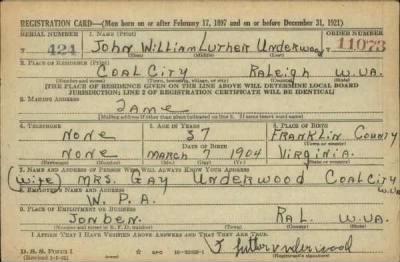 REGISTRATION CARD—(Men born on or after February 17, 1897 and on or before December 31, 1921)
SERIAL NUMBER 1. NAME (Print) ORDER NUMBER
T 424 John William Luther Underwood 11073
(First) (Middle) (Last)
2. PLACE OF RESIDENCE (Print)
COAL CITY RALEIGH W.VA.
(Number and street) (Town, township, village, or city) (County) (State)
[THE PLACE OF RESIDENCE GIVEN ON THE LINE ABOVE WILL DETERMINE LOCAL BOARD
JURISDICTION; LINE 2 OF REGISTRATION CERTIFICATE WILL BE IDENTICAL]
3. MAILING ADDRESS
SAME
[Mailing address if other than place indicated on line 2. If same insert word same]
4. TELEPHONE 5. AGE IN YEARS 6. PLACE OF BIRTH
NONE 37 FRANKLIN COUNTY
DATE OF BIRTH (Town or county)
NONE MARCH 7 1904 VIRGINIA.
(Exchange) (Number) (Mo.) (Day) (Yr.) (State or country)
7. NAME AND ADDRESS OF PERSON WHO WILL ALWAYS KNOW YOUR ADDRESS
(wife) MRS. GAY UNDERWOOD COAL CITY W.VA.
8. EMPLOYER'S NAME AND ADDRESS
W. P. A.
9. PLACE OF EMPLOYMENT OR BUSINESS
JONBEN. RAL. W.VA
(Number and street or R. F. D. number) (Town) (County) (State)
I AFFIRM THAT I HAVE VERIFIED ABOVE ANSWERS AND THAT THEY ARE TRUE.
D. S. S. FORM 1 GPO
J Luther Underwood
(Registrant's signature)